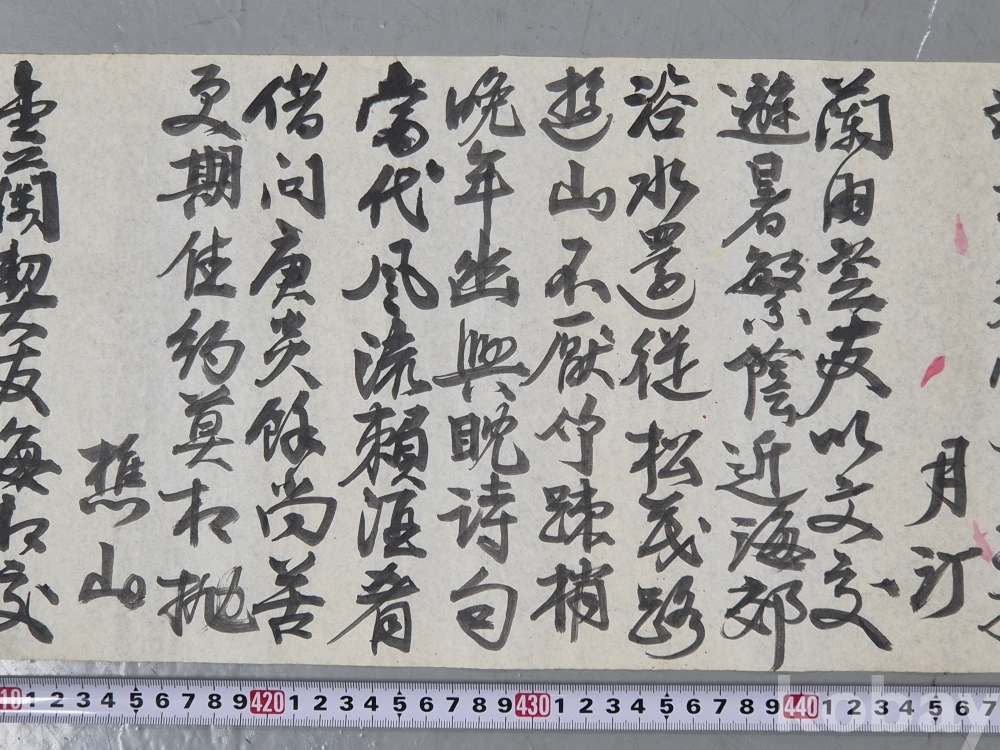 月汀
蘭芝友以文交
避暑繁陰近海郊
浴水還從松茂路
遊山不厭竹疎梢
晚年幽興耽詩句
當代風流賴酒肴
借问庚炎餘尚苦
更期佳約莫相抛
樵山
金蘭契友每相交
10 1 2 3 4 5 6 7 8 9 420 1 2 3 4 5 6 7 8 9 430 1 2 3 4 5 6 7 8 9 440 1 2 3 4 5 6 7
kobay